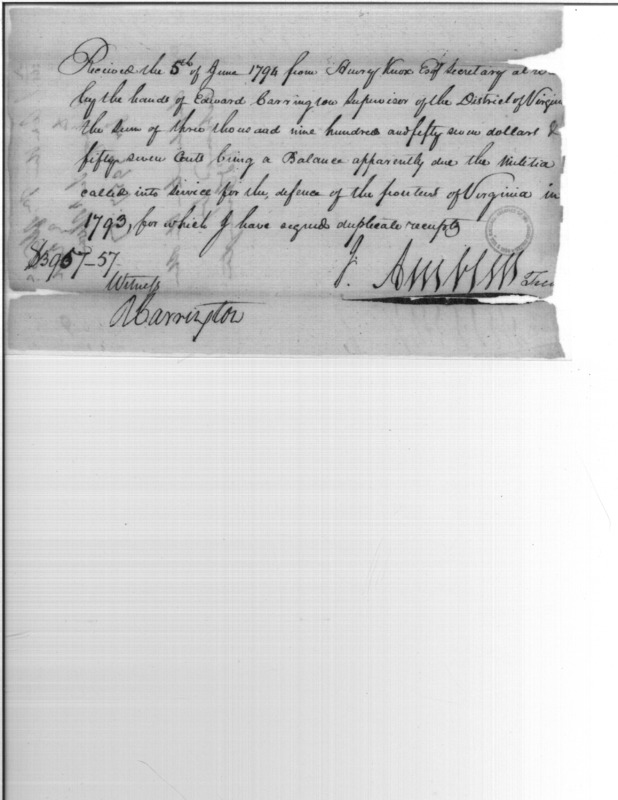 Received the 5th of June 1794 from Henry Knox Esqr Secretary at
by the hands of Edward Carrington Supervisor of the District of Virgin
the sum of three thousand nine hundred and fifty seven dollars &
fifty seven Cents being a Balance apparently due the Militia
called into Service for the defence of the frontiers of Virginia in
1793, for which I have signed duplicate receipts
$3957-57
J. Ambler
Witness
Carrington